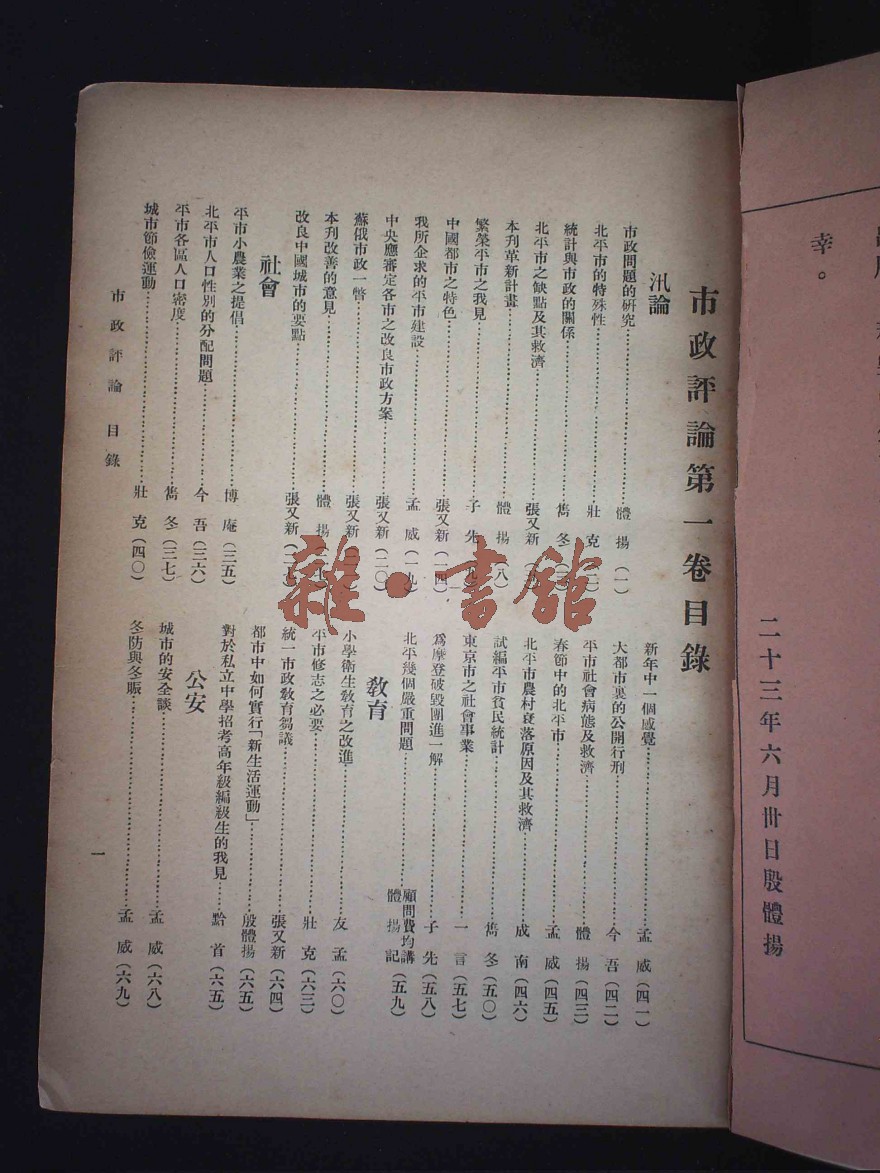 幸。
二十三年六月卅日殷體揚
市政評論第一卷目錄
汎論
市政問題的研究⋯⋯體揚(一)
北平市的特殊性⋯⋯壯克(二)
統計與市政的關係⋯⋯雋冬
北平市之缺點及其救濟⋯⋯張又新
本刊革新計畫⋯⋯體揚(八)
繁榮平市之我見⋯⋯子先(九)
中國都市之特色⋯⋯張又新(一四)
我所企求的平市建設⋯⋯孟威(一九)
中央應審定各市之改良市政方案⋯⋯張又新(二〇)
蘇俄市政一瞥⋯⋯張又新
本刊改善的意見⋯⋯體揚
改良中國城市的要點⋯⋯張又新
社會
平市小農業之提倡⋯⋯博庵(三五)
北平市人口性別的分配問題⋯⋯今吾(三六)
平市各區人口密度⋯⋯雋冬(三七)
城市節儉運動⋯⋯壯克(四〇)
新年中一個感覺⋯⋯孟威(四一)
大都市裏的公開行刑⋯⋯今吾(四二)
平市社會病態及救濟⋯⋯體揚(四三)
春節中的北平市⋯⋯孟威(四五)
北平市農村衰落原因及其救濟⋯⋯成南(四六)
試編平市貧民統計⋯⋯雋冬(五〇)
東京市之社會事業⋯⋯一言(五七)
爲摩登破毀團進一解⋯⋯子先(五八)
北平幾個嚴重問題⋯⋯顧問費均講 體揚記(五九)
教育
小學衛生教育之改進⋯⋯友孟(六〇)
平市修志之必要⋯⋯壯克(六三)
統一市政教育芻議⋯⋯張又新(六四)
都市中如何實行「新生活運動」⋯⋯殷體揚(六五)
對於私立中學招考高年級編級生的我見⋯⋯黔首(六五)
公安
城市的安全談⋯⋯孟威(六八)
冬防與冬賑⋯⋯孟威(六九)
市政評論 目錄
一
雜·書館